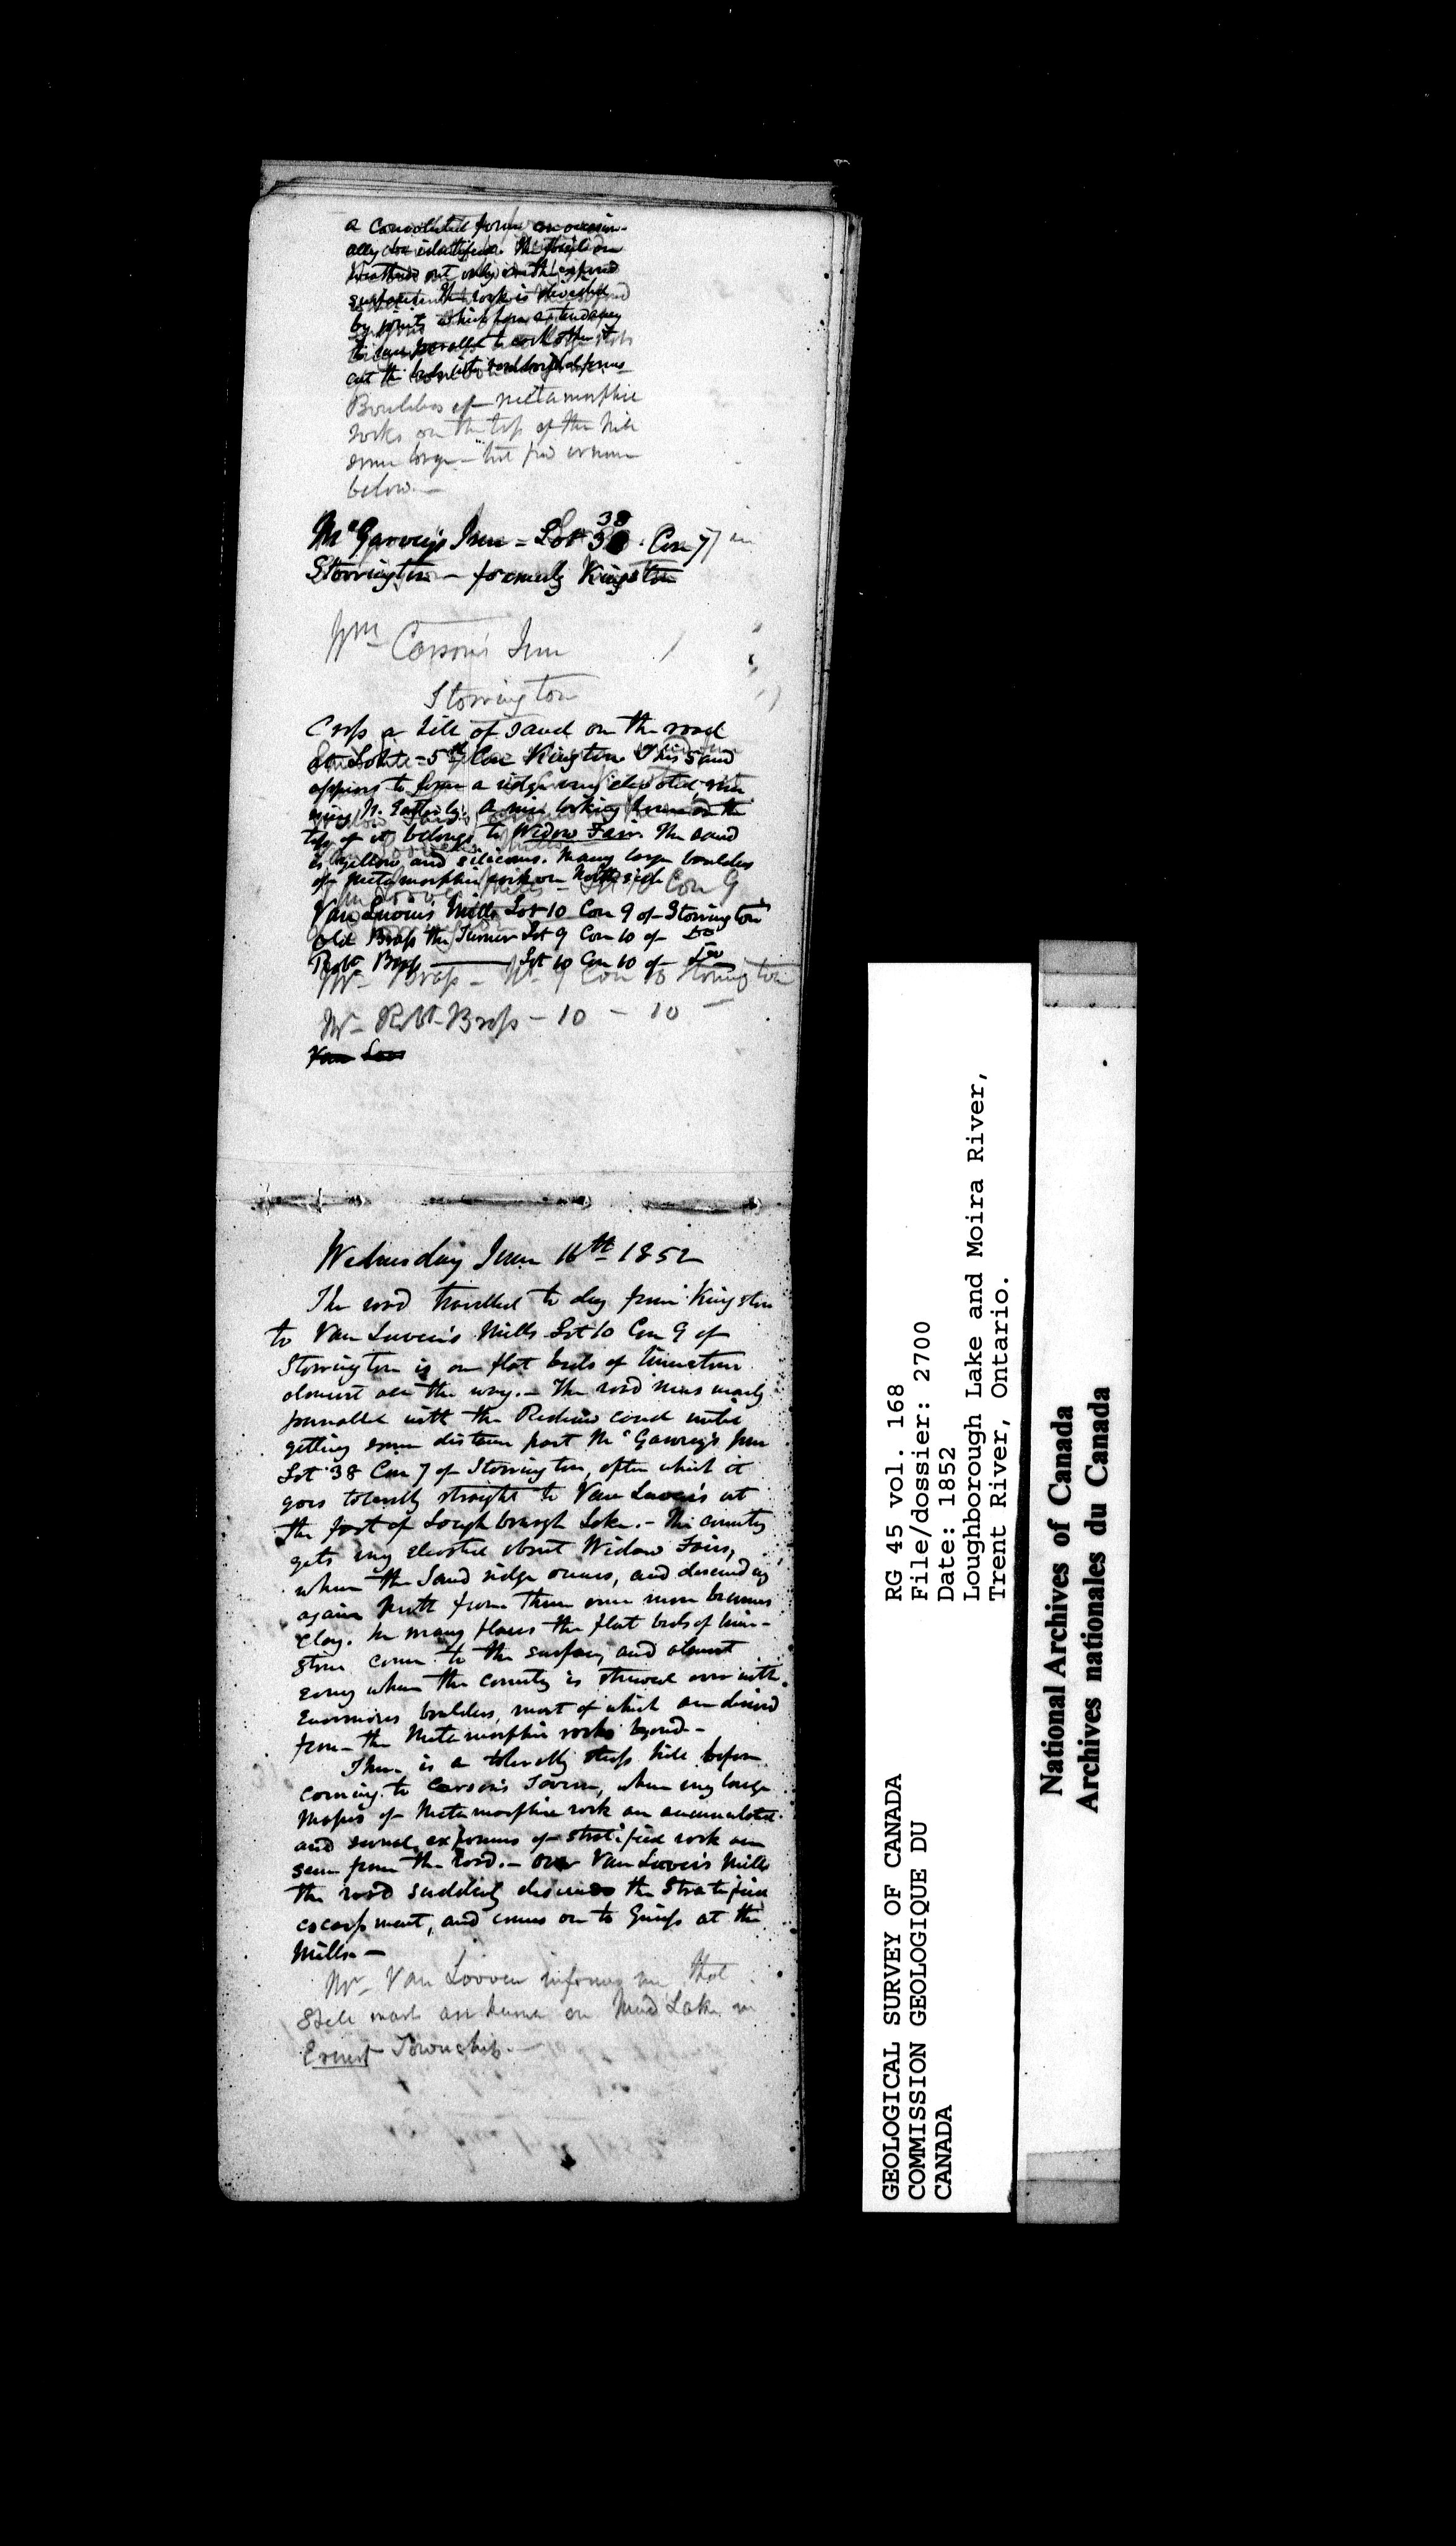 a convoluted form are occasion-
ally to be identified. The fossils are
weathered out only on the exposed
surfaces. The rock is divided
by joints which from a tendency
to run parallel to each other
cut the beds into rhomboidal forms
Boulders of metamorphic
rocks on the top of the hill
some large — but few or none
below. —
McGarvey's Inn = Lot 38 . Con 7 in
Storrington — formerly Kingston
Wm Carson's Inn
Storrington
Cross a hill of sand on the road
at Lot 5th Con Kingston. This sand
appears to form a ridge very elevated, run
ning N. Easterly. A nice looking house on the
top of it belongs to Widow Fair. The sand
is yellow and silicious. Many large boulders
of metamorphic rock on North side
Con 9
Van Luven's Mills Lot 10 Con 9 of Storrington
Old Brass the Turner Lot 9 Con 10 of Do
Robt Brass Lot 10 Con 10 of Do
Mr Brass — No 9 Con 10 Storrington
Mr Robt Brass — 10 — 10 —
Van Luv
Wednesday June 16th 1852
The road travelled to day from Kingston
to Van Luven's Mills Lot 10 Con 9 of
Storrington is on flat beds of limestone
almost all the way. — The road runs nearly
parallel with the Rideau canal until
getting some distance past McGarvey's Inn
Lot 38 Con 7 of Storrington, after which it
goes tolerably straight to Van Luven's at
the foot of Loughborough Lake. — The country
gets very elevated about Widow Fairs,
where the Sand ridge occurs, and descending
again North from there once more becomes
Clay. In many places the flat beds of lime-
stone come to the surface, and almost
every where the country is strewed over with
enormous boulders, most of which are derived
from the Metamorphic rocks beyond. —
There is a tolerably steep hill before
coming to Carson's Tavern, where very large
masses of Metamorphic rock are accumulated
and several exposures of stratified rock are
seen from the road. — Over Van Luven's Mills
the road suddenly descends the Stratified
escarpment, and comes on to Gneiss at the
Mills —
Mr Van Looven informs me that
Shell marl is found on Mud Lake in
Ernest Township. —
GEOLOGICAL SURVEY OF CANADA
COMMISSION GEOLOGIQUE DU
CANADA
RG 45 vol. 168
File/dossier: 2700
Date: 1852
Loughborough Lake and Moira River,
Trent River, Ontario.
National Archives of Canada
Archives nationales du Canada